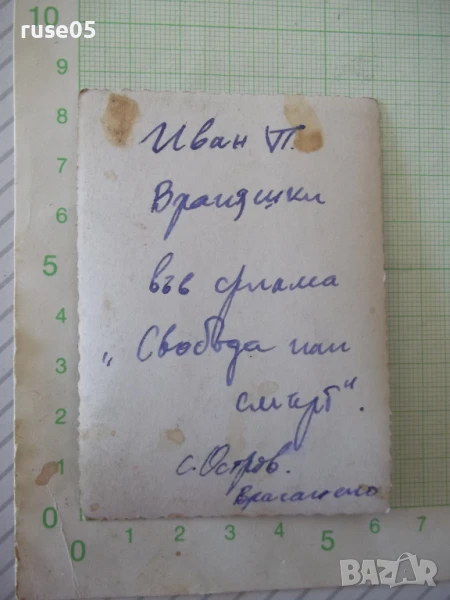 ruse05
Иван П.
Врачански
във филма
„Свобода или
смърт".
с. Остров.
Врачанско
10
9
8
7
6
5
4
3
2
1
0
0
1
2
3
4
5
6
7
BAZAR